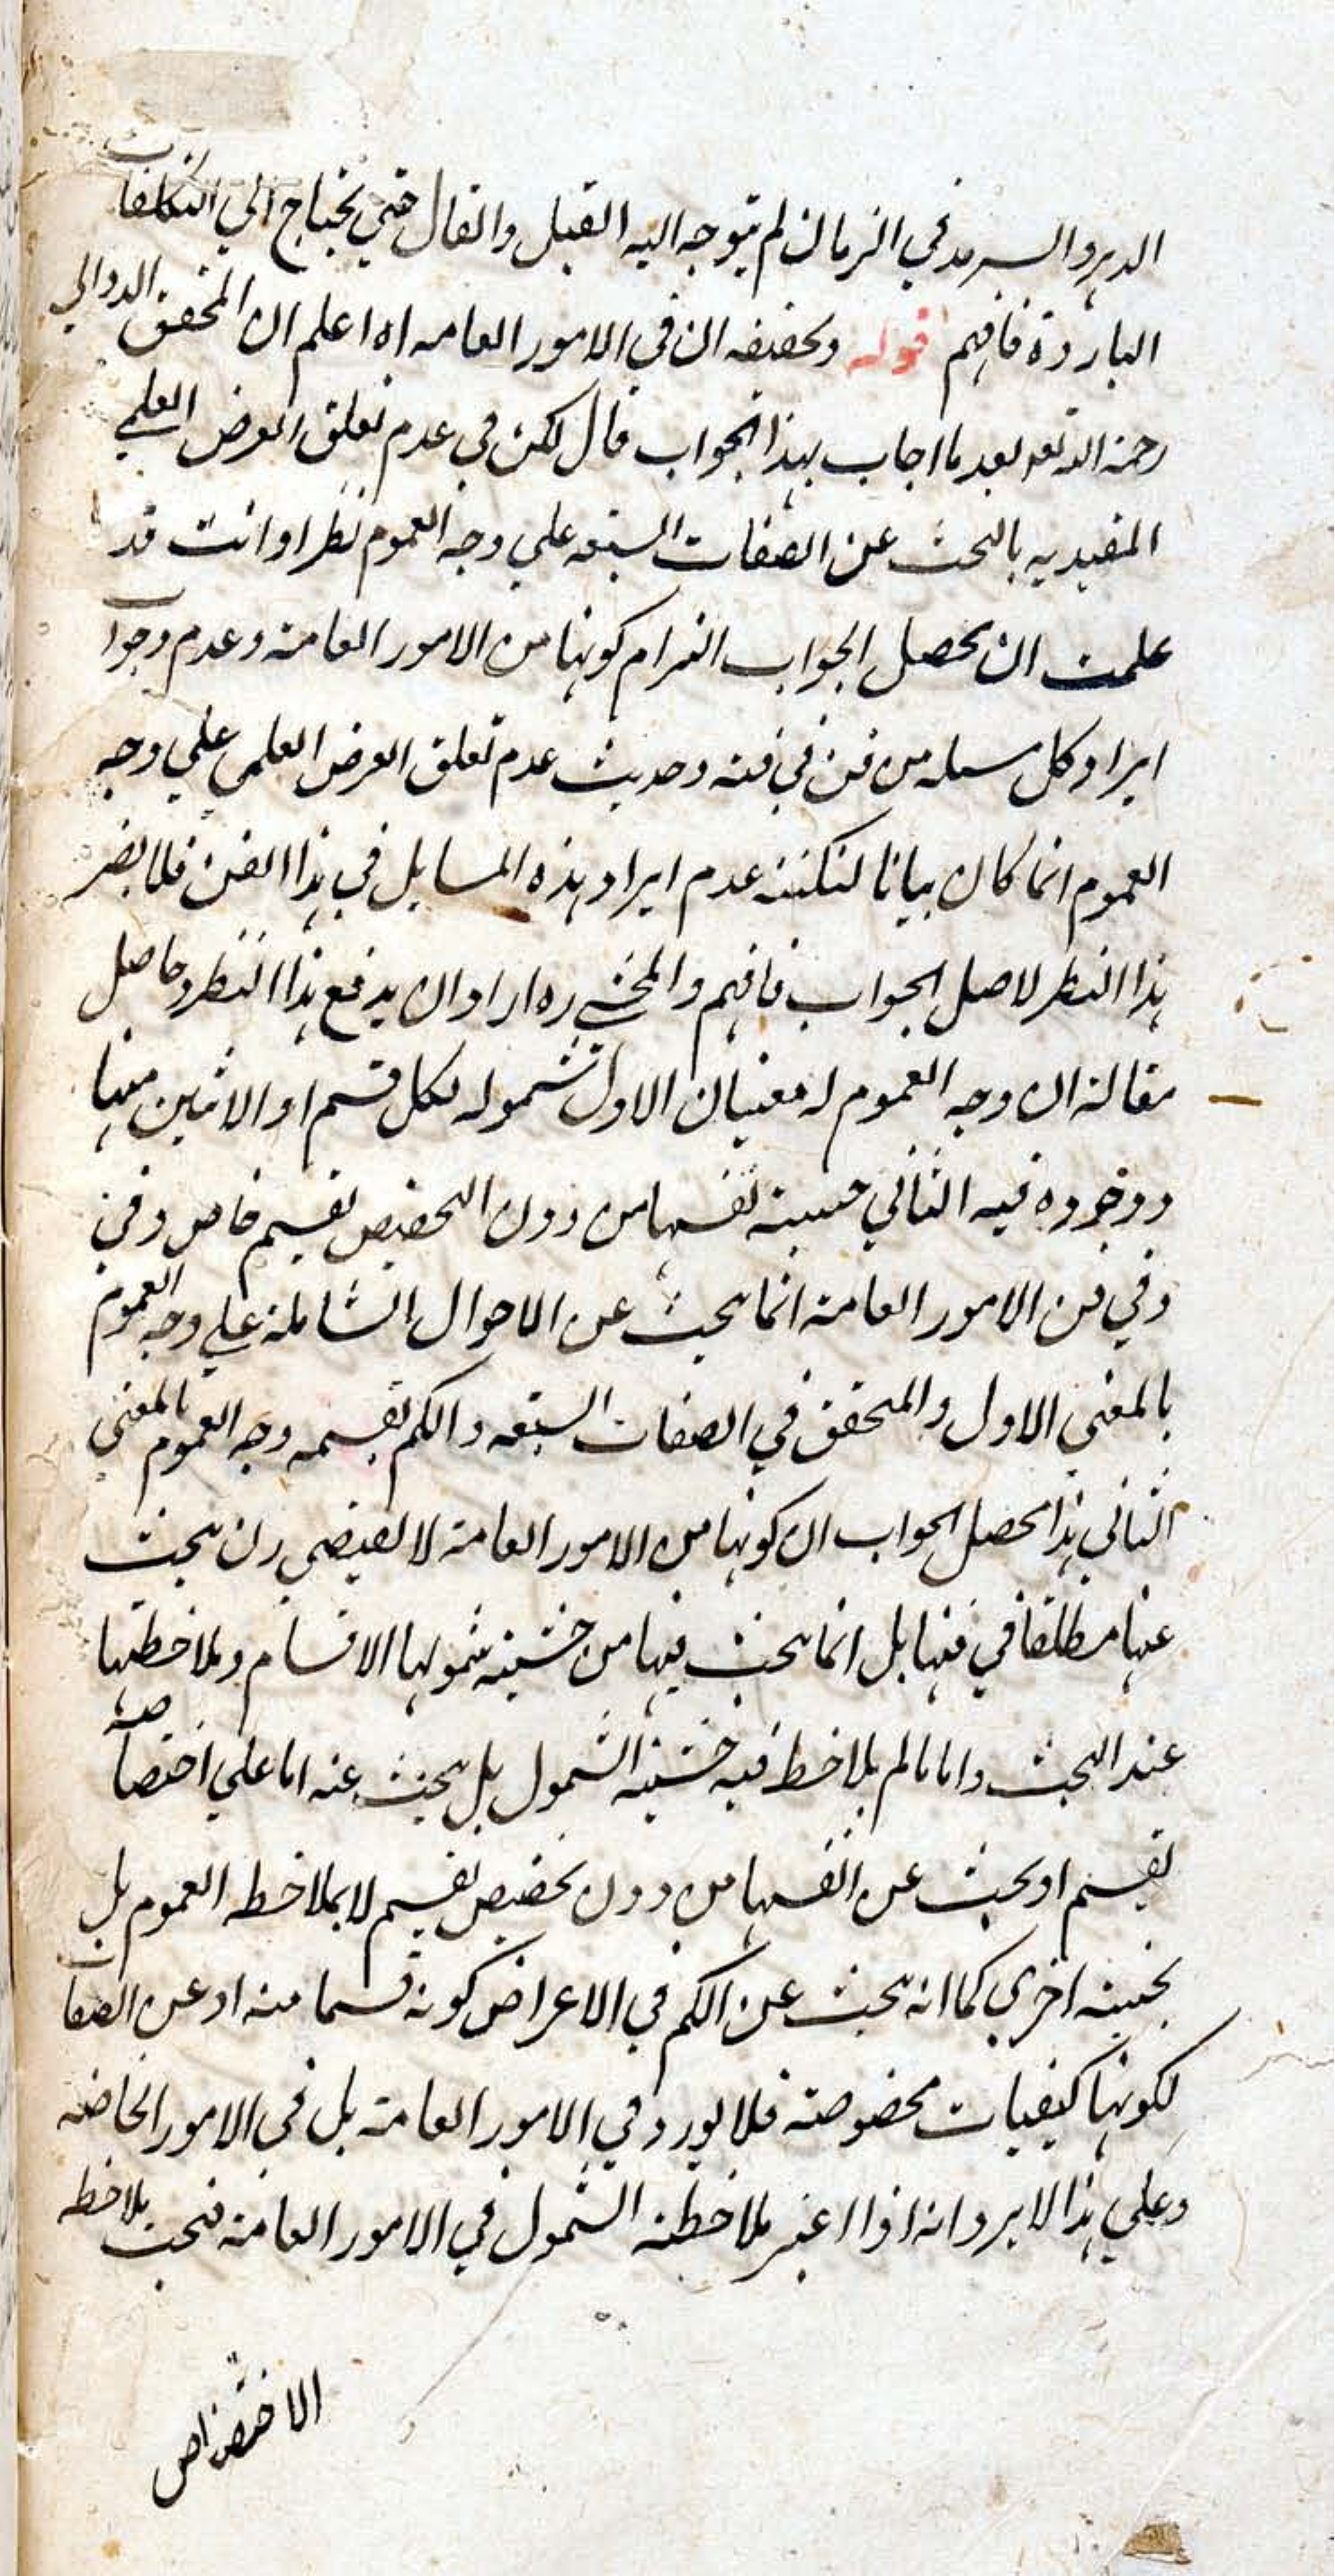 الدهر والسرمد في الزمان لم يتوجه اليه القيل والقال حتي يحتاج الي التكلفات
الباردة فافهم قوله وتحقيقه ان في الامور العامه اه اعلم ان المحقق الدواني
رحمة الله تعه بعد ما اجاب بهذا الجواب قال لكن في عدم تعلق الغرض العلمي
المقيد به بالبحث عن الصفات السبعه علي وجه العموم نظرا وانت قد
علمت ان محصل الجواب التزام كونها من الامور العامة وعدم وجوب
ايراد كل مسله من فن في فنه وحديث عدم تعلق الغرض العلمي علي وجه
العموم انما كان بيانا لنكتة عدم ايراد هذه المسايل في هذا الفن فلا يضر
هذا النظر لاصل الجواب فافهم والمحشي ره اراد ان يدفع هذا النظر وحاصل
مقالة ان وجه العموم له معنيان الاول شموله لكل قسم او الاثنين منها
ووجوده فيه الثاني حيثية نفسها من دون التخصيص بقسم خاص وفي
وفي فن الامور العامة انما يبحث عن الاحوال الشاملة علي وجه العموم
بالمعني الاول والمتحقق في الصفات السبعه والكم بقسمه وجه العموم بالمعني
الثاني هذا محصل الجواب ان كونها من الامور العامة لا يقتضي ان يبحث
عنها مطلقا في فنها بل انما يبحث فيها من حيثية شمولها الاقسام وملاحظتها
عند البحث واما ما لم يلاحظ فيه حيثية الشمول بل يبحث عنه اما علي اختصاصه
بقسم او يبحث عن انفسها من دون تخصيص بقسم لا بملاحظه العموم بل
بحيثية اخري كما انه يبحث عن الكم في الاعراض كونه قسما منه او عن الصفات
لكونها كيفيات مخصوصة فلا يورد في الامور العامة بل في الامور الخاصه
وعلي هذا لا يرد انه اذا اعتبر ملاحظة الشمول في الامور العامة فبحث بملاحظه
الاختصاص